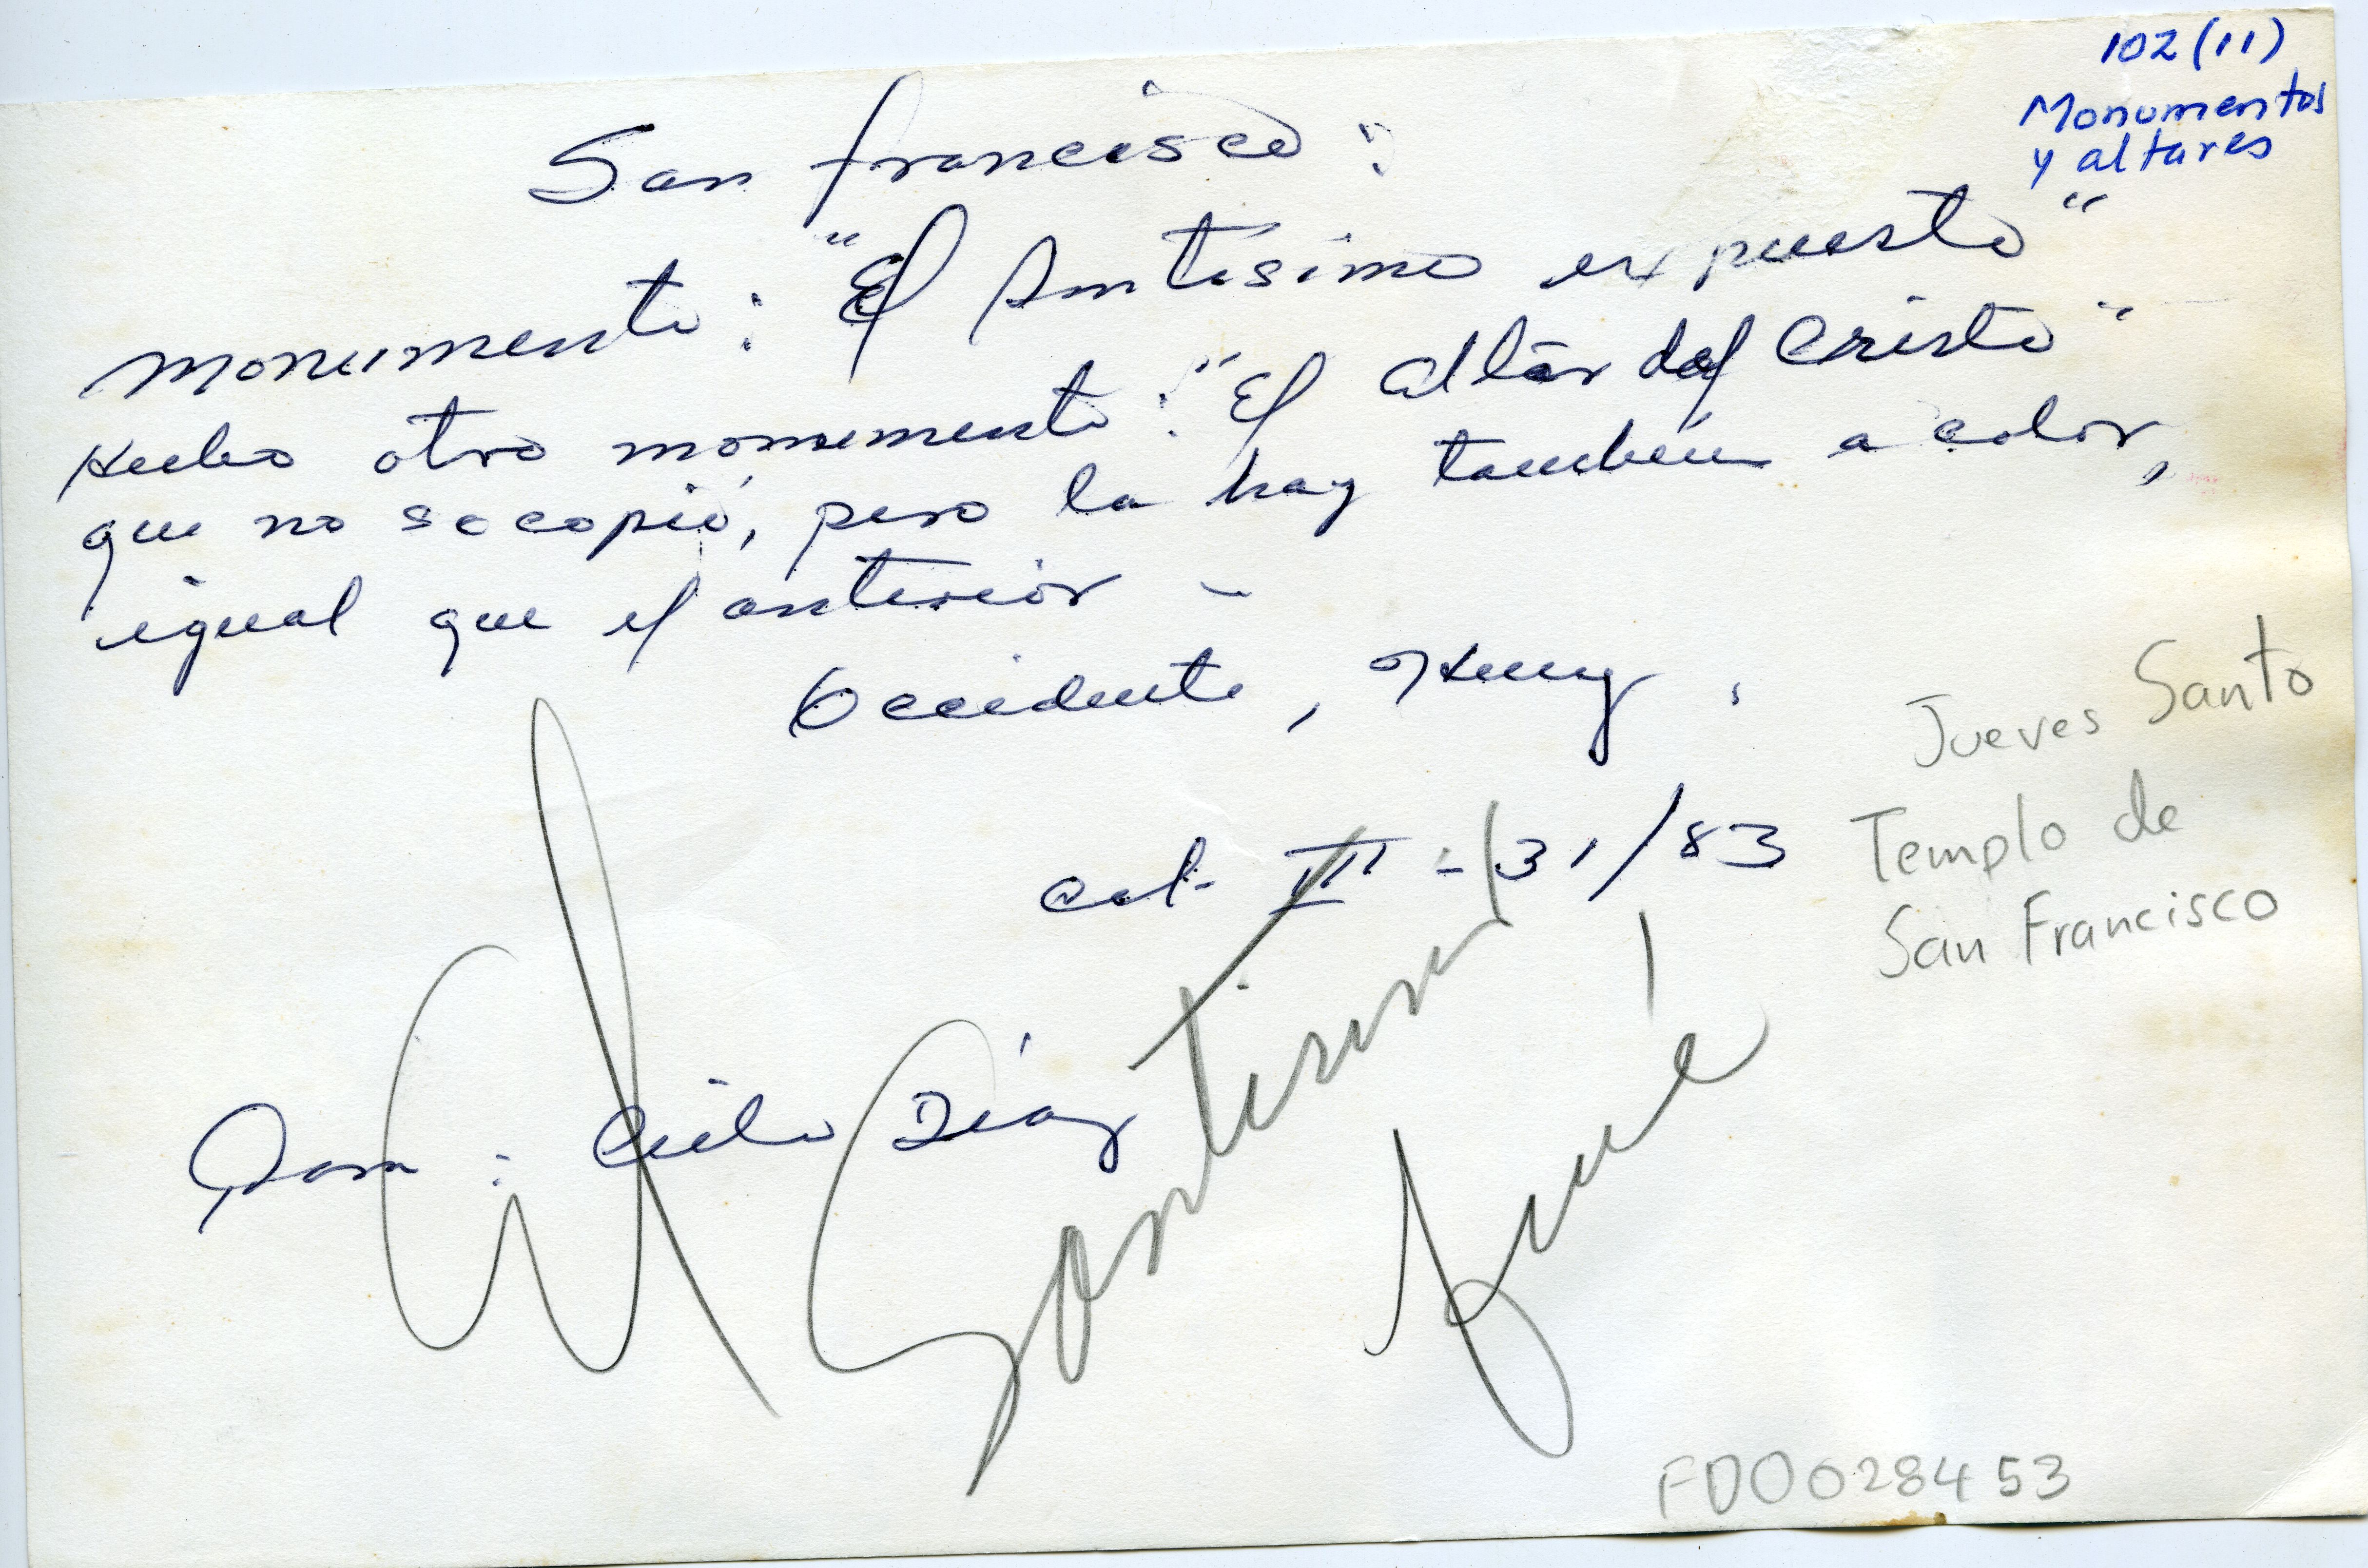 102 (11)
Monumentos
y altares
San Francisco :
Monumento : "El Santisimo expuesto"
Hubo otro monumento : "El altar del Cristo"
que no se copió, pero la hay también a color,
igual que el anterior -
Occidente, Henry .
Cal- III - 31/83
Jueves Santo
Templo de
San Francisco
Para : Cielo Díaz
El Santísimo
fué
FD0028453